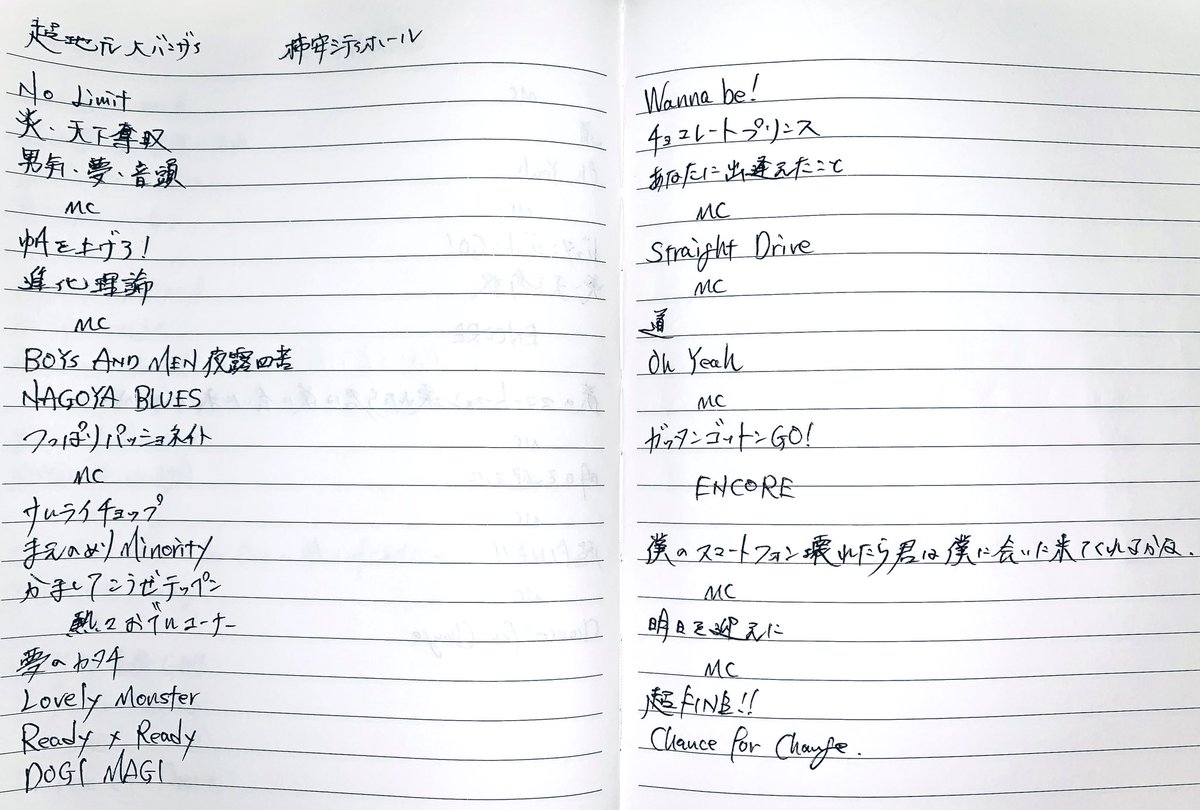 超地元大バンザイ 柿安シティホール
No Limit
炎・天下奪取
男気・夢・音頭
MC
帆を上げろ!
進化理論
MC
BOYS AND MEN 夜露四苦
NAGOYA BLUES
つっぱりパッショネイト
MC
サムライチョップ
まえのめりMinority
かましてこうぜテッペン
熱々おでんコーナー
夢のカタチ
Lovely Monster
Ready x Ready
DOGI MAGI
Wanna be!
チョコレートプリンス
あなたに出逢えたこと
MC
Straight Drive
MC
道
Oh Yeah
MC
ガッタンゴットンGO!
ENCORE
僕のスマートフォン壊れたら君は僕に会いに来てくれるかな.
MC
明日を迎えに
MC
超FINE!!
Chance for Change.